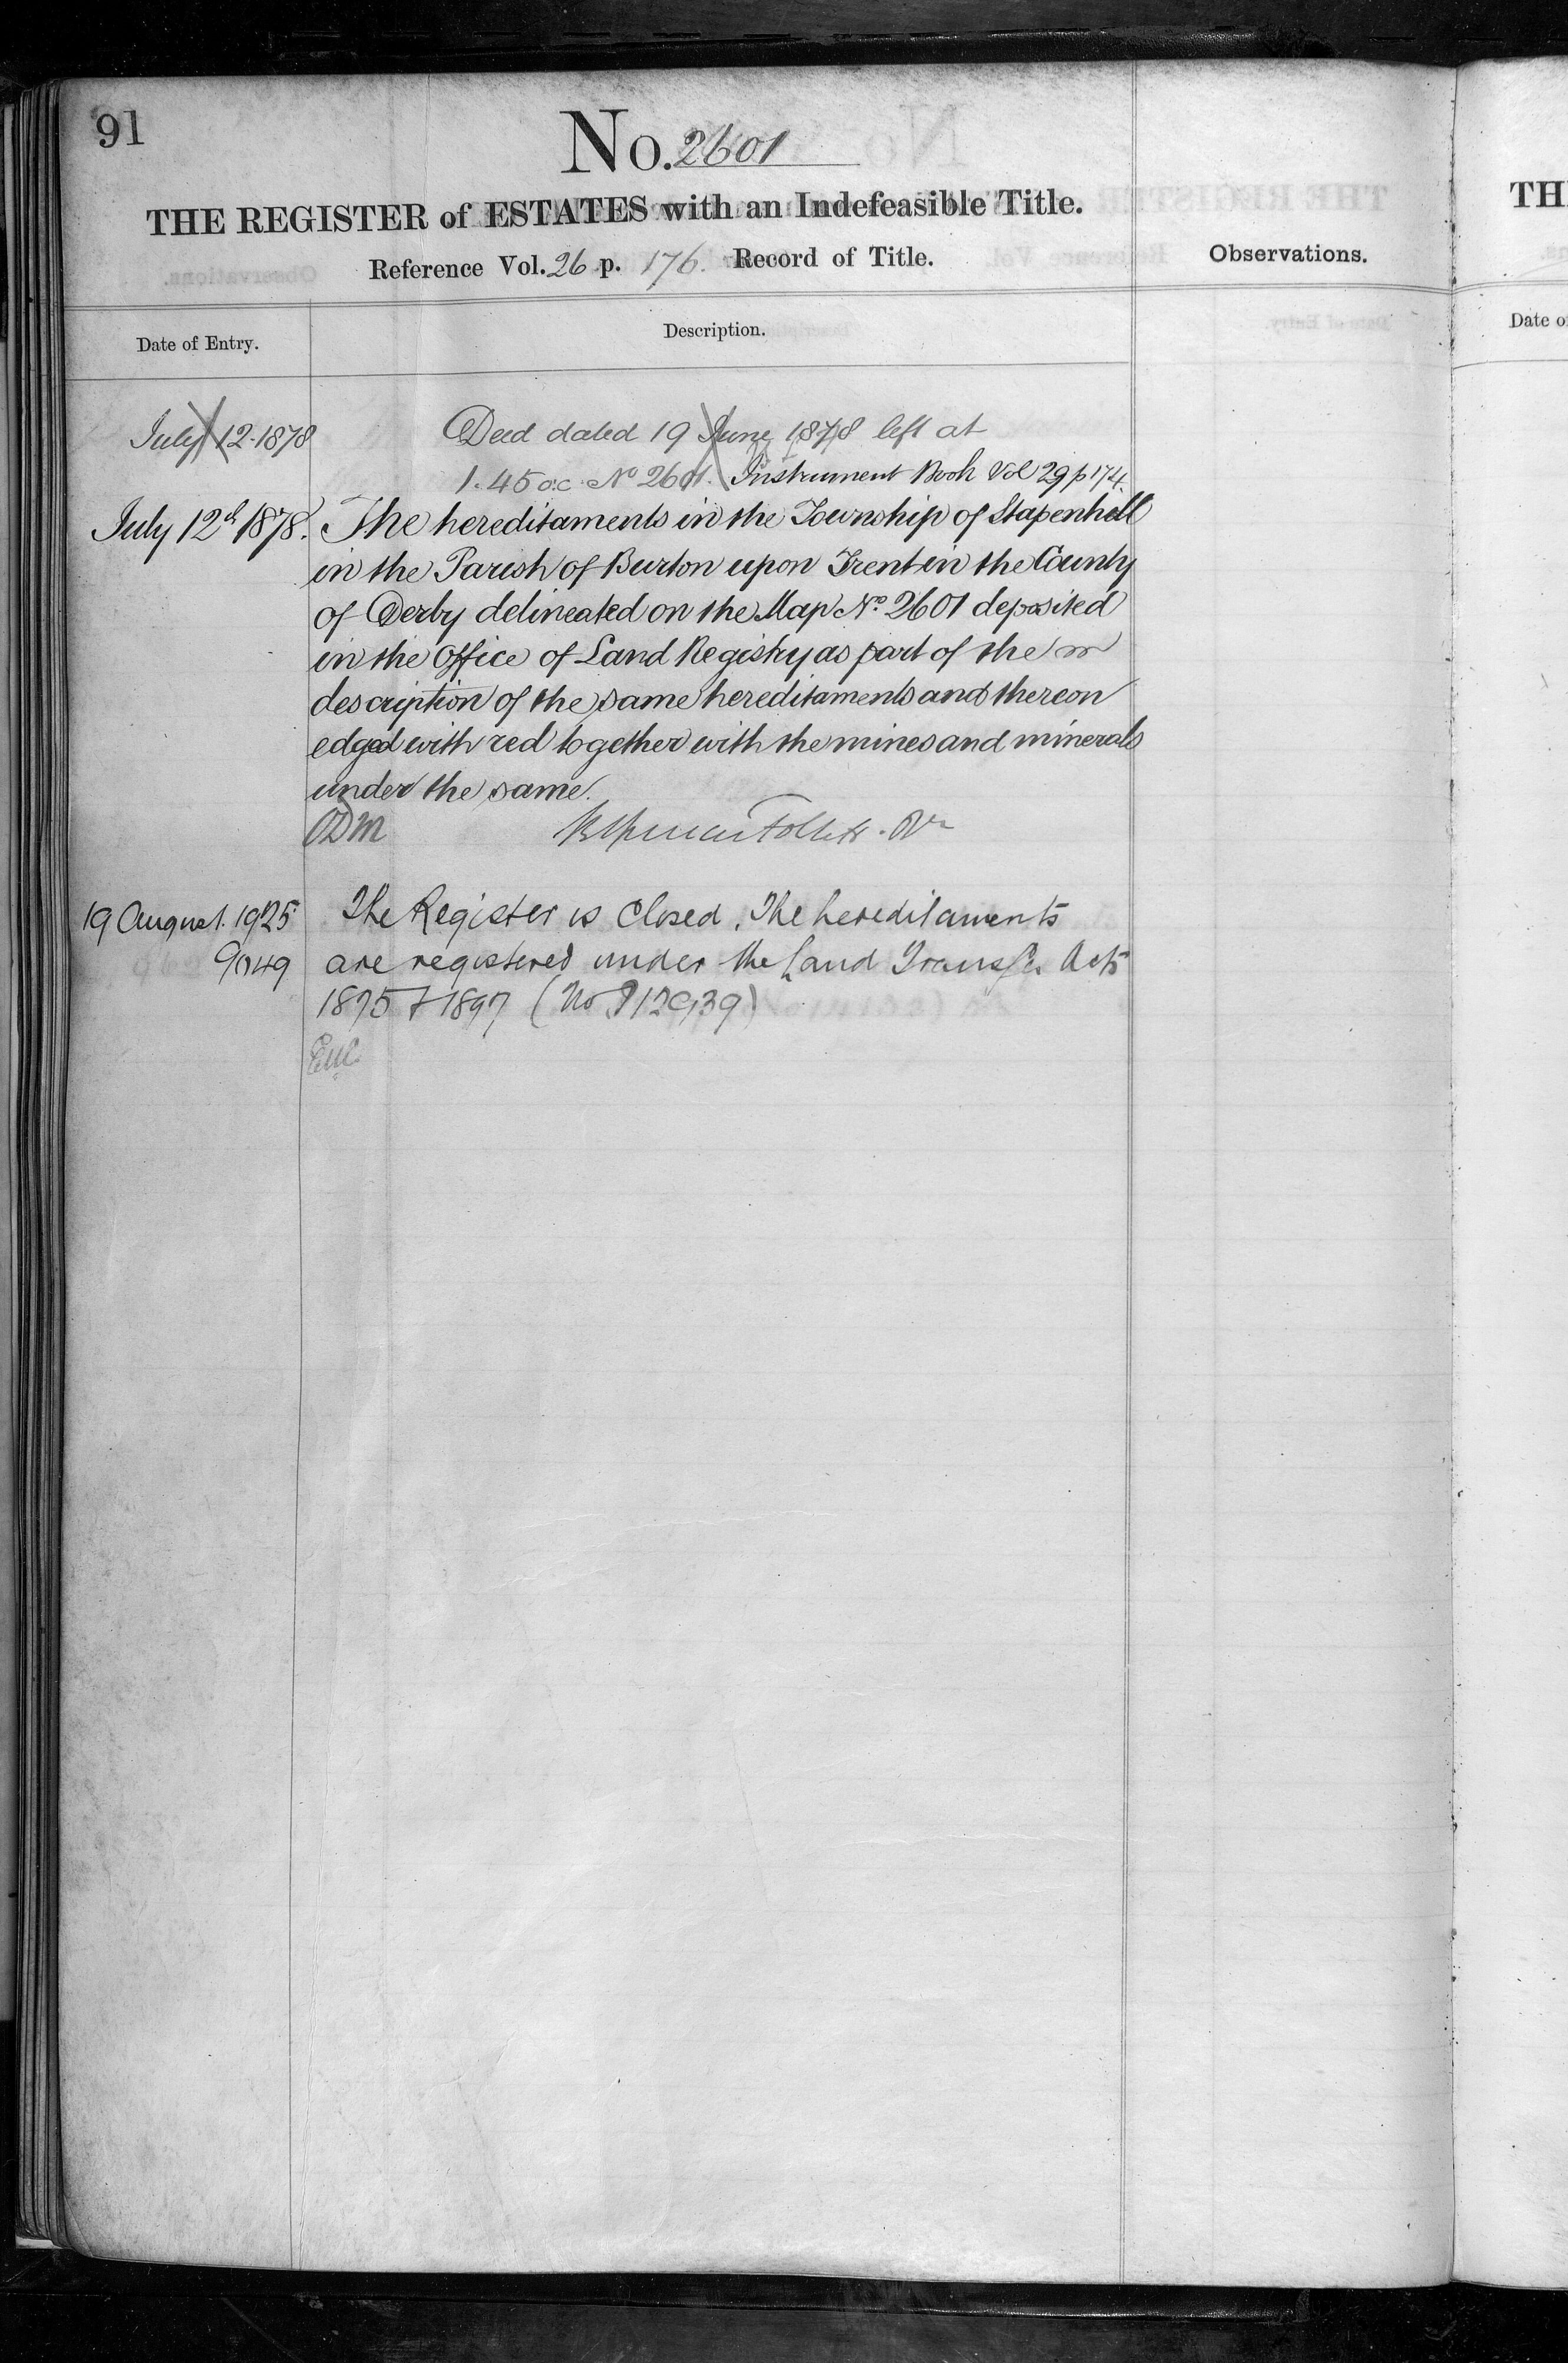 91
No. 2601
THE REGISTER of ESTATES with an Indefeasible Title.
Reference Vol. 26 p. 176. Record of Title.
Observations.
Date of Entry.
Description.
July 12. 1878
Deed dated 19 June 1878 left at
1.45 o.c. No 2601. Instrument Book Vol 29 p 174.
July 12th 1878.
The hereditaments in the Township of Stapenhill
in the Parish of Burton upon Trent in the County
of Derby delineated on the Map No. 2601 deposited
in the Office of Land Registry as part of the
description of the same hereditaments and thereon
edged with red together with the mines and minerals
under the same.
ODM
Follett
19 August. 1925
The Register is Closed. The hereditaments
9049
are registered under the Land Transfer Acts
1875 & 1897 (No P12939)
TH
Date o